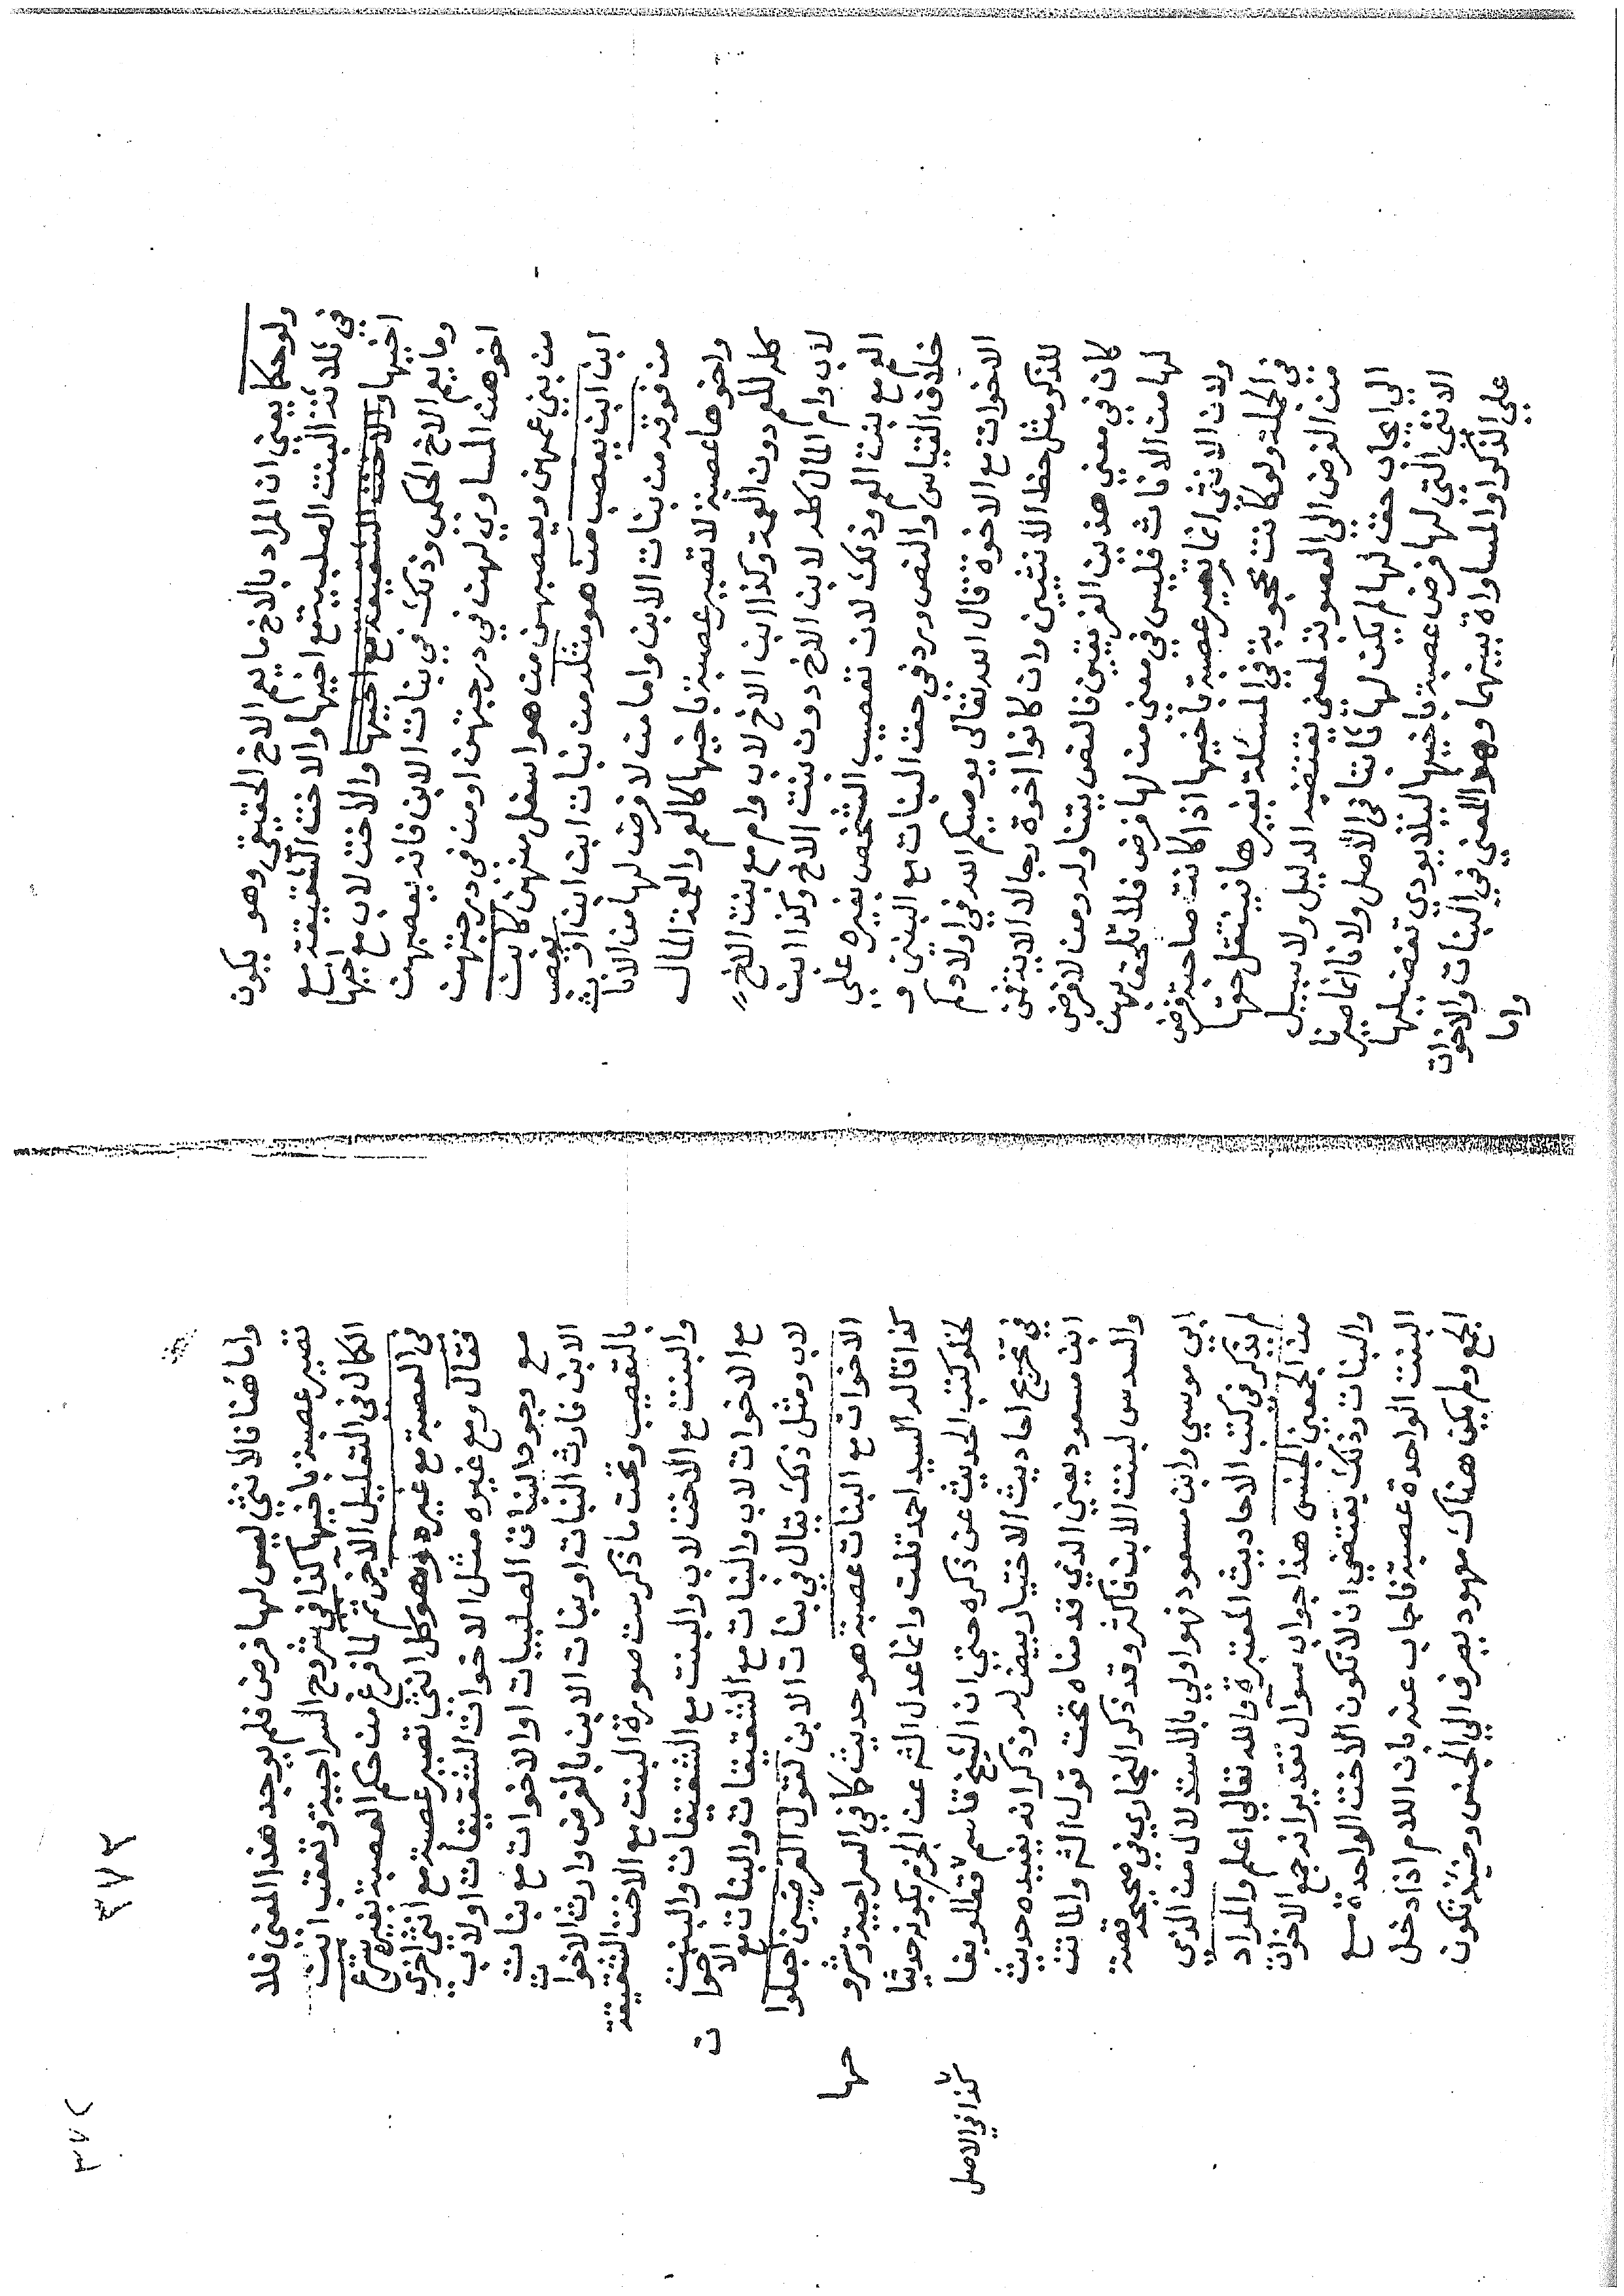 ولو حكما يعني ان المراد بالاخ ما يعم الاخ الحقيقي وهو يكون
في ثلاثة البنت الصلبية مع اخيها والاخت الشقيقة مع
اخيها والاخت لاب مع اخيها
وما يعم الاخ الحكمي وذلك في بنات الابن فانه يعصبهن
اخوهن المساوي لهن في درجتهن او من في درجتهن
من بني عمهن ويعصبهن من هو اسفل منهن كابن
ابن ابن يعصب من هو مثله من بنات ابن ابن او يعصب
من فوقه من بنات الابن واما من لا فرض لها من الاناث
واخوها عصبة لا تصير عصبة باخيها كالعم والعمة المال
كله للعم دون العمة وكذا ابن الاخ لاب وام مع بنت الاخ
لاب وام المال كله لابن الاخ دون بنت الاخ وكذا ابن
العم مع بنت العم وذلك لان تعصيب الشخص بغيره علي
خلاف القياس والنص ورد في حق البنات مع البنين و
الاخوات مع الاخوة قال الله تعالي يوصيكم الله في اولادكم
للذكر مثل حظ الانثيين وان كانوا اخوة رجالا الايتين
كان في معني هذين الفريقين فالنص يتناوله ومن لا فرض
لها من الاناث فليس في معني من لها فرض فلا تلحق بهن
ولان الانثي انما تصير عصبة باخيها اذا كانت صاحبة فرض
في الجملة ولو كانت محجوبة في المسئلة بغيرها فينتقل حقها
من الفرض الي العصوبة لمعني تقتضيه الدليل ولا سبيل
الي ايجاب حق لها لم يكن لها ثابتا في الاصل ولانا انما صيرنا
الانثي التي لها فرض عصبة باخيها ليئلا يودي تفضيلها
علي الذكر او المساواة بينهما وهو المعني في البنات والاخوات
واما
واما هنا فالانثي ليس لها فرض فلم يوجد هذا المعني فلا
تصير عصبة باخيها كذا في شروح السراجية وتعقب ابن
الكمال في التعليل الاخير ثم لما فرغ من حكم العصبة بغيره شرع
في العصبة مع غيره وهو كل انثي تصير عصبة مع انثي اخري
فقال ومع غيره مثل الاخوات الشقيقات او لاب
مع وجود البنات الصلبيات او الاخوات مع بنات
الابن فارث البنات او بنات الابن بالفرض وارث الاخوات
بالتعصيب وتحت ما ذكرت صورة البنت مع الاخت الشقيقة
والبنت مع الاخت لاب والبنت مع الشقيقات والبنت
مع الاخوات لاب والبنات مع الشقيقات والبنات مع الاخوات
لاب ومثل ذلك يقال في بنات الابن لقول الفرضيين اجعلوا
الاخوات مع البنات عصبة هو حديث كما في السراجية وشروحها
كذا قاله السيد احمد قلت وانما عدل الشه عن الجزم بكونه حديثا
لخلو كتب الحديث عن ذكره حتي ان الشيخ قاسم قطلوبغا
كذا في الاصل
في تخريج احاديث الاختيار بيض له وذكر انه يفيده حديث
ابن مسعود يعني الذي قدمناه تحت قول الشه والمائت
والسدس لبنت الابن فاكثر وقد ذكر البخاري في صحيحه قصة
ابي موسي وابن مسعود فهو اولي بالاستدلال من الذي
لم يذكر في كتب الاحاديث المعتبرة والله تعالي اعلم والمراد
من الجمعين الجنس هذا جواب سوال تقديره انه جمع الاخوات
والبنات وذلك يقتضي ان لا تكون الاخت الواحدة مع
البنت الواحدة عصبة فاجاب عنه بان اللام اذا دخل
الجمع ولم يكن هناك معهود يصرف الي الجنس وحينئذ تكون
٣٧٢
٣٧٢